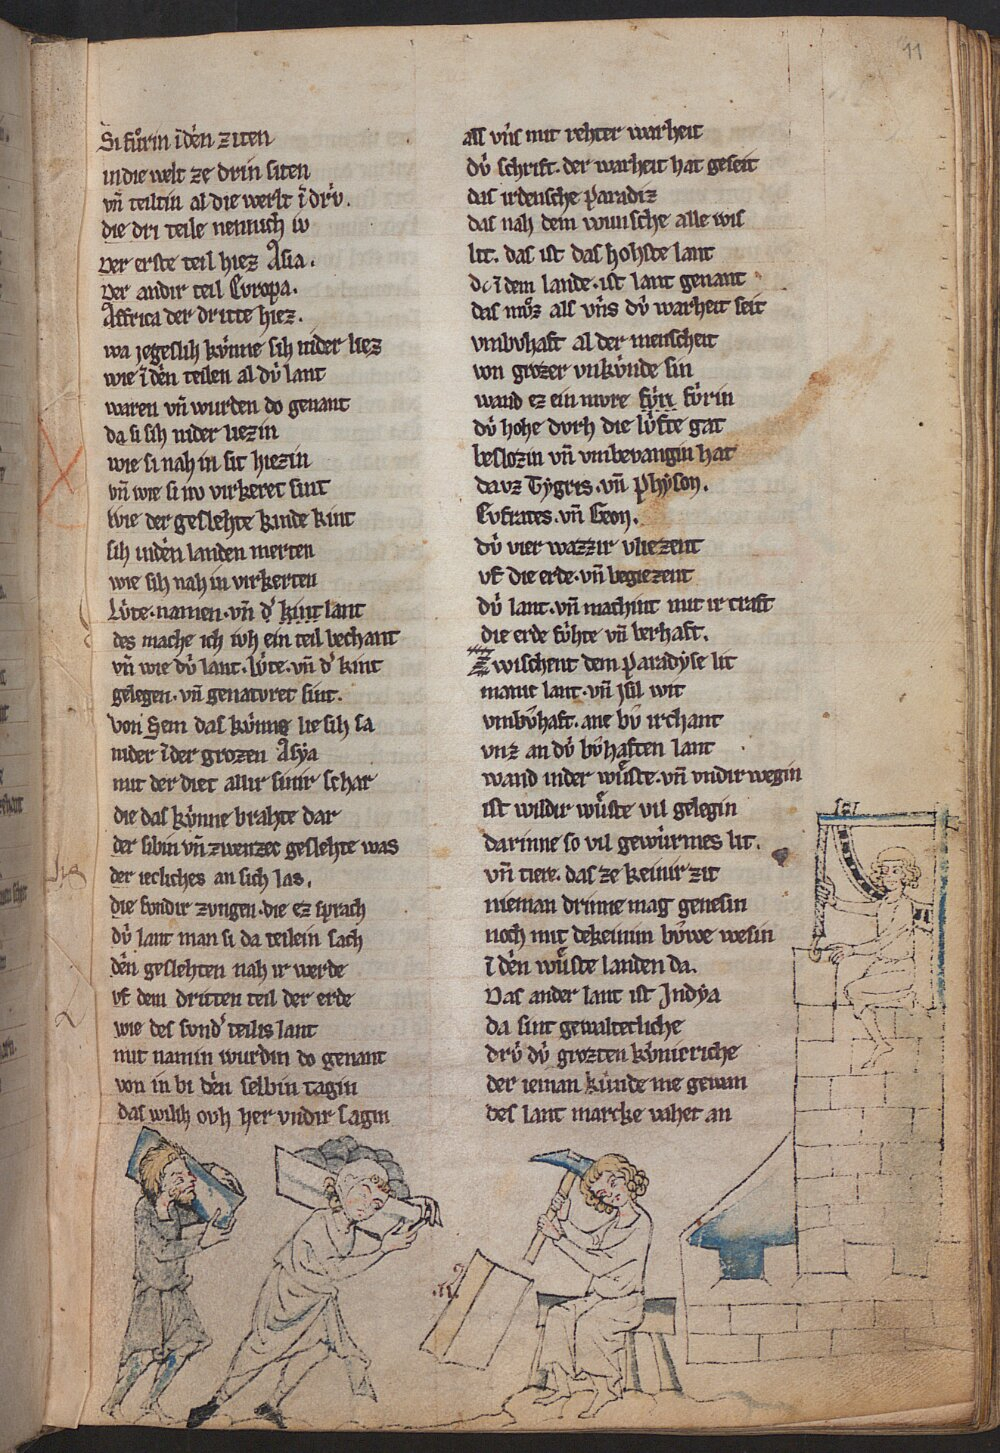 11
Si fuͦrin ī dēn ziten
in die welt ze drin siten
vn̄ teiltin al die werlt ī drv̍.
die dri teile nennich iv
Der erste teil hiez Asia.
Der andir teil Evropa.
Affrica der dritte hiez.
wa iegeslih kv̍nne sih nider liez
wie ī dēn teilen al dv̍ lant
waren vn̄ wurden do genant
da si sih nider liezin
wie si nah in sit hiezin
vn̄ wie si nv virkeret sint
Wie der geslehte kinde kint
sih in dēn landen merten
wie sih nah in virkerten
Lv̍te. namen. vn̄ d' kint lant
des mache ich ivh ein teil bechant
vn̄ wie dv̍ lant. lv̍te. vn̄ d' kint
gelegen. vn̄ genaturet sint.
Von Sem das kv̍nne lie sih sa
nider ī der grozen Asya
mit der diet allir sinir schar
die das kv̍nne brahte dar
der sibin vn̄ zwenzec geslehte was
der iecliches an sich las.
die svndir zvngen. die ez sprach
dv̍ lant man si da teilein sach
dēn geslehten nah ir werde
vf dem dritten teil der erde
wie des svnd' teilis lant
mit namin wurdin do genant
von in bi dēn selbin tagin
das wilih ovh her vndir sagin
als vn̄s mit rehter warheit
dv̍ schrift. der warheit hat geseit
das irdensche paradiz
das nah dem wunsche alle wis
lit. das ist das hohste lant
dc ī dem lande. ist lant genant
das muͦz als vn̄s dv̍ warheit seit
vmbvhaft al der menscheit
von grozer vnkv̍nde sin
wand ez ein mvre fv̍rī fv̍rin
dv̍ hohe dvrh die lv̍fte gat
beslozin vn̄ vmbevangin hat
da vz Tygris. vn̄ physon.
Evfrates. vn̄ Geon.
dv̍ vier wazzir vliezent
vf die erde. vn̄ begiezent
dv̍ lant. vn̄ machint mit ir craft
die erde fv̍hte vn̄ berhaft.
Zwischent dem paradyse lit
manic lant. vn̄ isil wit
vmbv̍haft. ane bv̍ irchant
vnz an dv̍ bv̍haften lant
wand in der wuͤste. vn̄ vndir wegin
ist wildir wuͤste vil gelegin
dar inne so vil gewürmes lit.
vn̄ tiere. das ze keinir zit
nieman drinne mag genesin
noch mit dekeinin bv̍we wesin
ī dēn wuͤste landen da.
Das ander lant ist Indya
da sint gewaltecliche
drv̍ dv̍ grozten kv̍nicriche
der ieman kùnde nie gewan
des lant marcke vahet an